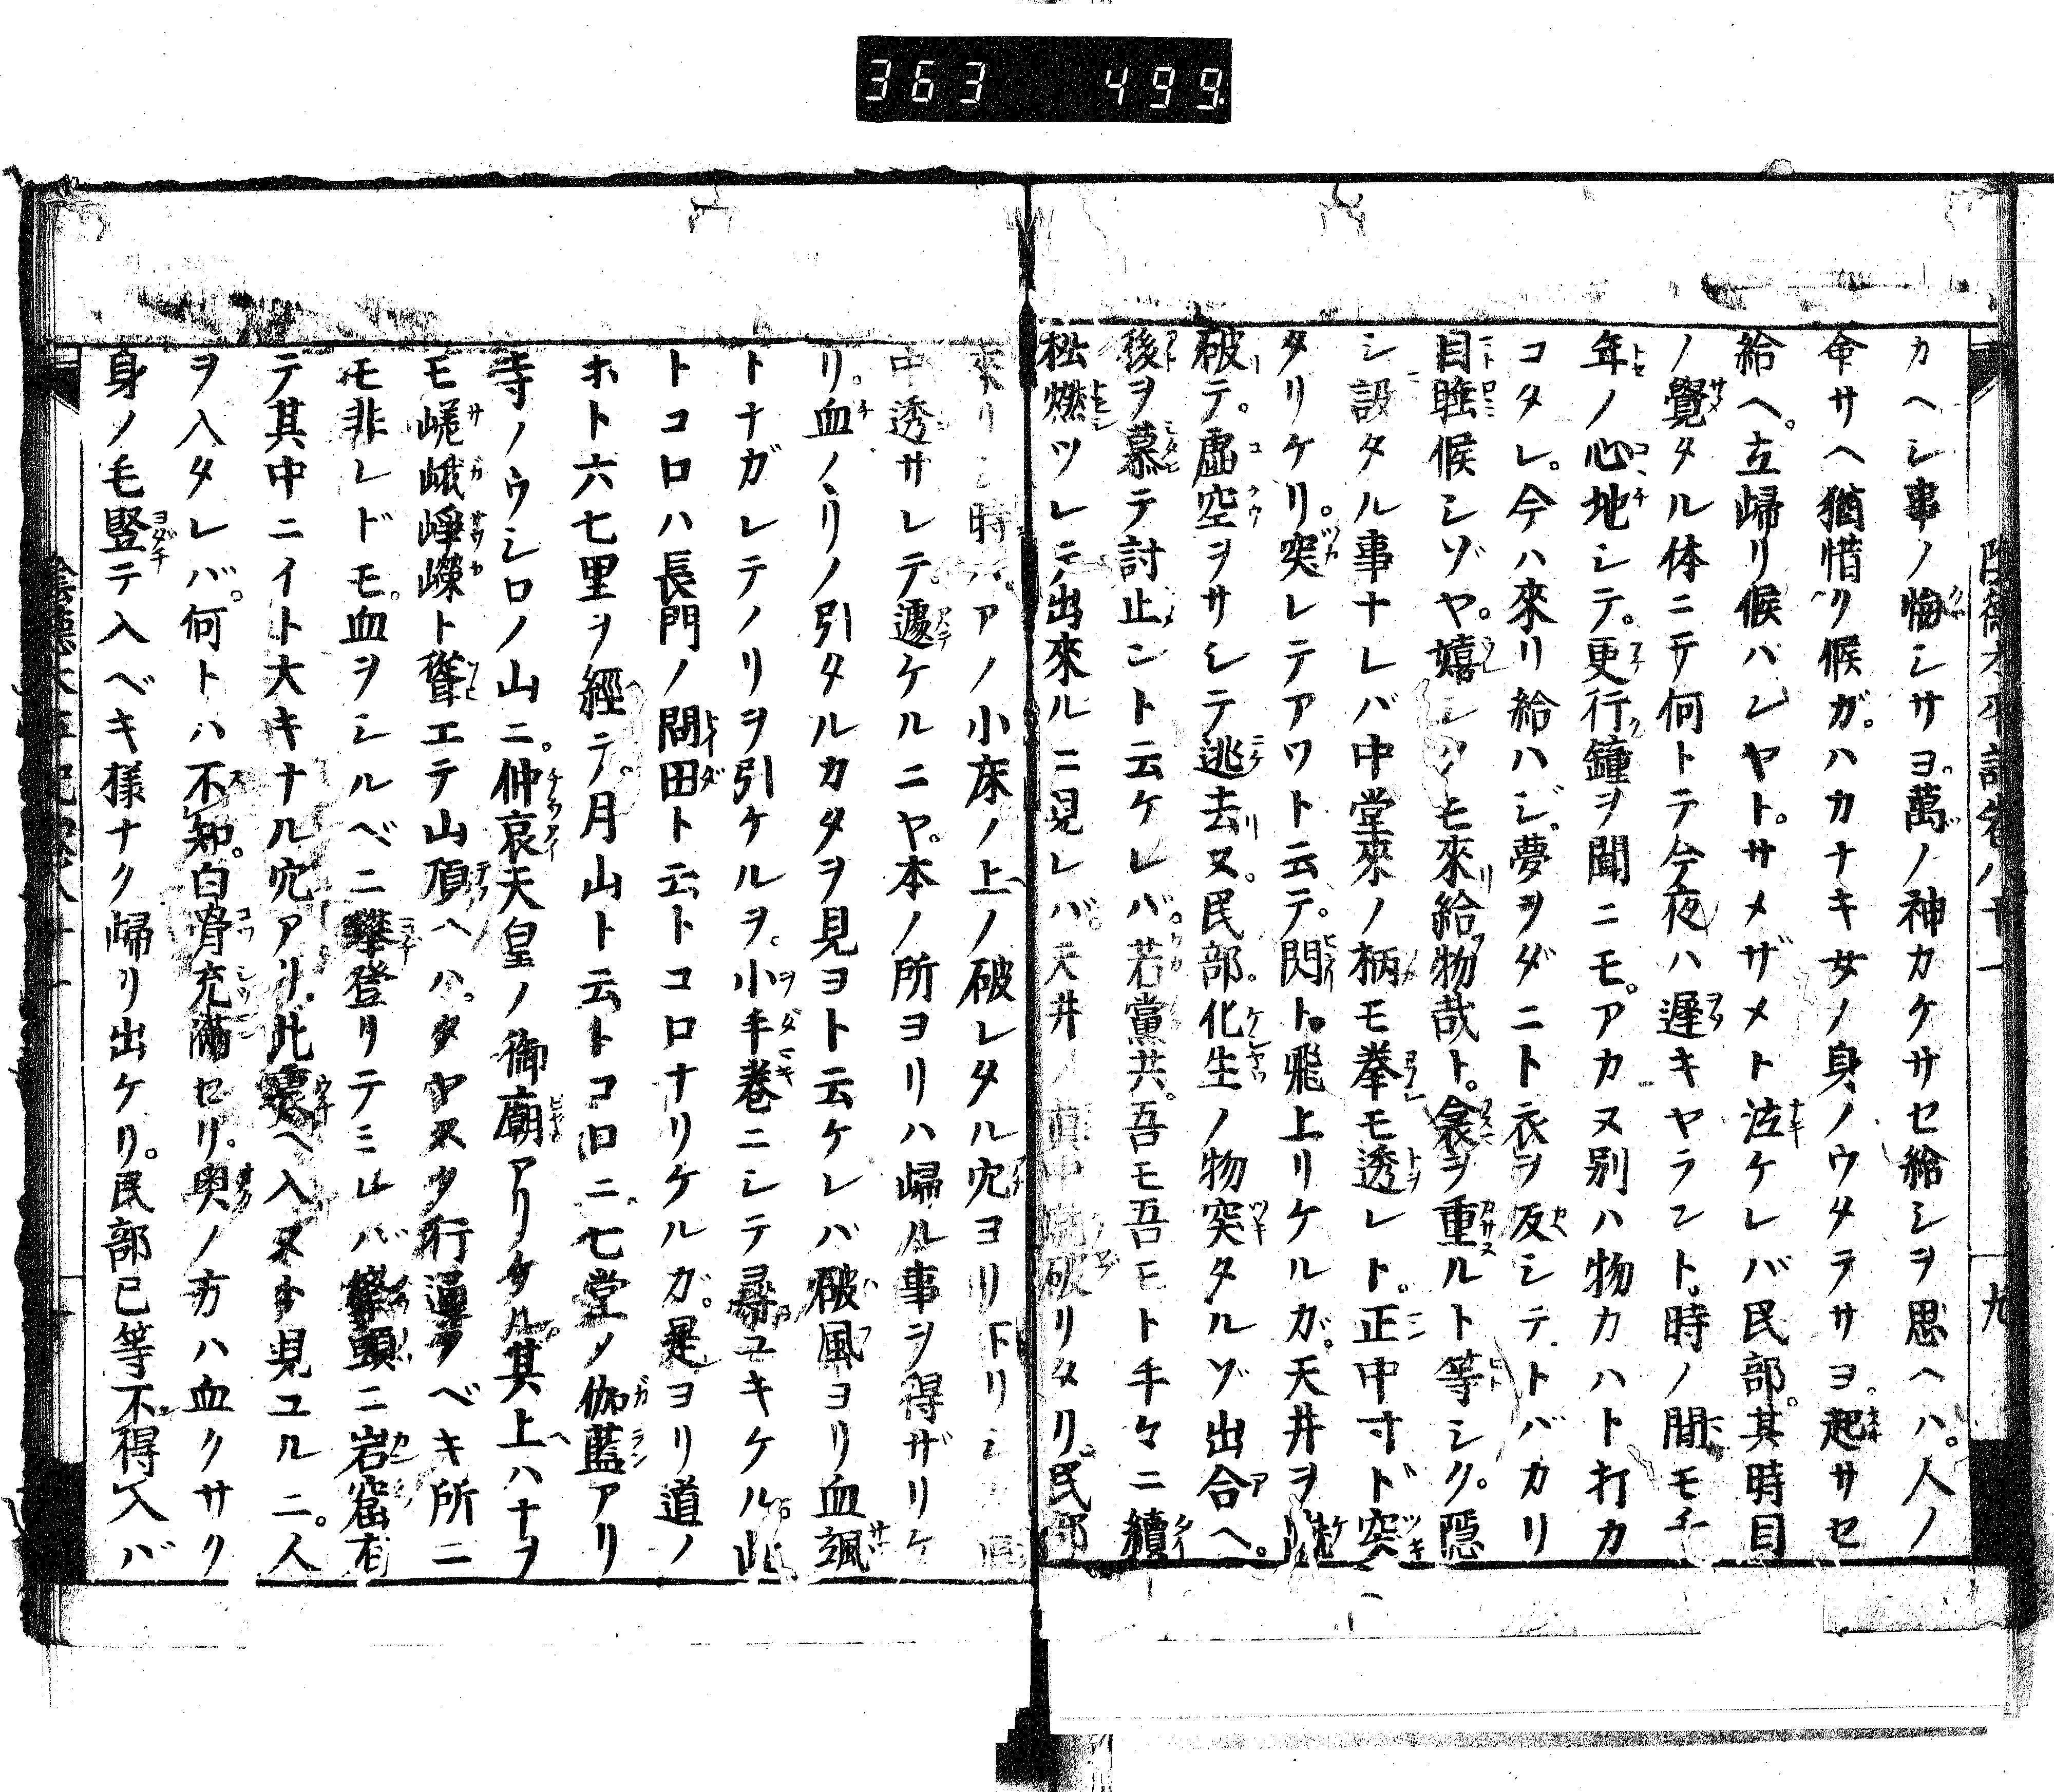 363 499
陰德太平記卷八十一
九
カヘシ事ノ悔シサヨ。萬ノ神カケサセ給シヲ思ヘハ。人ノ
命サヘ猶惜ク候ガ。ハカナキ女ノ身ノウタラサヨ。起サセ
給ヘ。立歸リ候ハンヤト。サメザメト泣ケレバ民部。其時目
ノ覺タル体ニテ何トテ今夜ハ遲キヤラント。時ノ間モ千
年ノ心地シテ。更行鐘ヲ聞ニモ。アカヌ別ハ物カハト打カ
コタレ。今ハ來リ給ハジ。夢ヲダニト衣ヲ反シテトバカリ
目睡候シゾヤ。嬉シクモ來給物哉ト。衾ヲ重ルト等シク。隠
シ設タル事ナレバ中堂來ノ柄モ拳モ透レト。正中寸ド突
タリケリ。突レテアワト云テ。閃ト飛上リケルガ。天井ヲ蹴
破テ。虚空ヲサシテ逃去ヌ。民部。化生ノ物突タルゾ出合ヘ。
後ヲ慕テ討止ント云ケレバ。若黨共。吾モ吾モト手々ニ續
松燃ツレテ出來ルニ見レバ。天井ノ眞中蹴破リタリ。民部
來リシ時ハ。アノ小床ノ上ノ破レタル穴ヨリ下リシ
中透サレテ。遽ケルニヤ。本ノ所ヨリハ歸ル事ヲ得ザリケ
リ。血ノリノ引タルカタヲ見ヨト云ケレバ破風ヨリ血颯
トナガレテノリヲ引ケルヲ。小手巻ニシテ尋ユキケル此
トコロハ長門ノ問田ト云トコロナリケルガ。是ヨリ道ノ
ホト六七里ヲ經テ。月山ト云トコロニ。七堂ノ伽藍アリ
寺ノウシロノ山ニ。仲哀天皇ノ御廟アリケル。其上ハナヲ
モ嵯峨崢嶸ト聳エテ山頂ヘハ。タヤスク行通フベキ所ニ
モ非レドモ。血ヲシルベニ攀登リテミレバ絶頭ニ岩窟有
テ其中ニイト大キナル穴アリ。此裏ヘ入ヌト見ユルニ。人
ヲ入タレバ。何トハ不知。白骨充滿セリ。奥ノ方ハ血クサク
身ノ毛竪テ入ベキ様ナク歸リ出ケリ。民部已等不得入バ